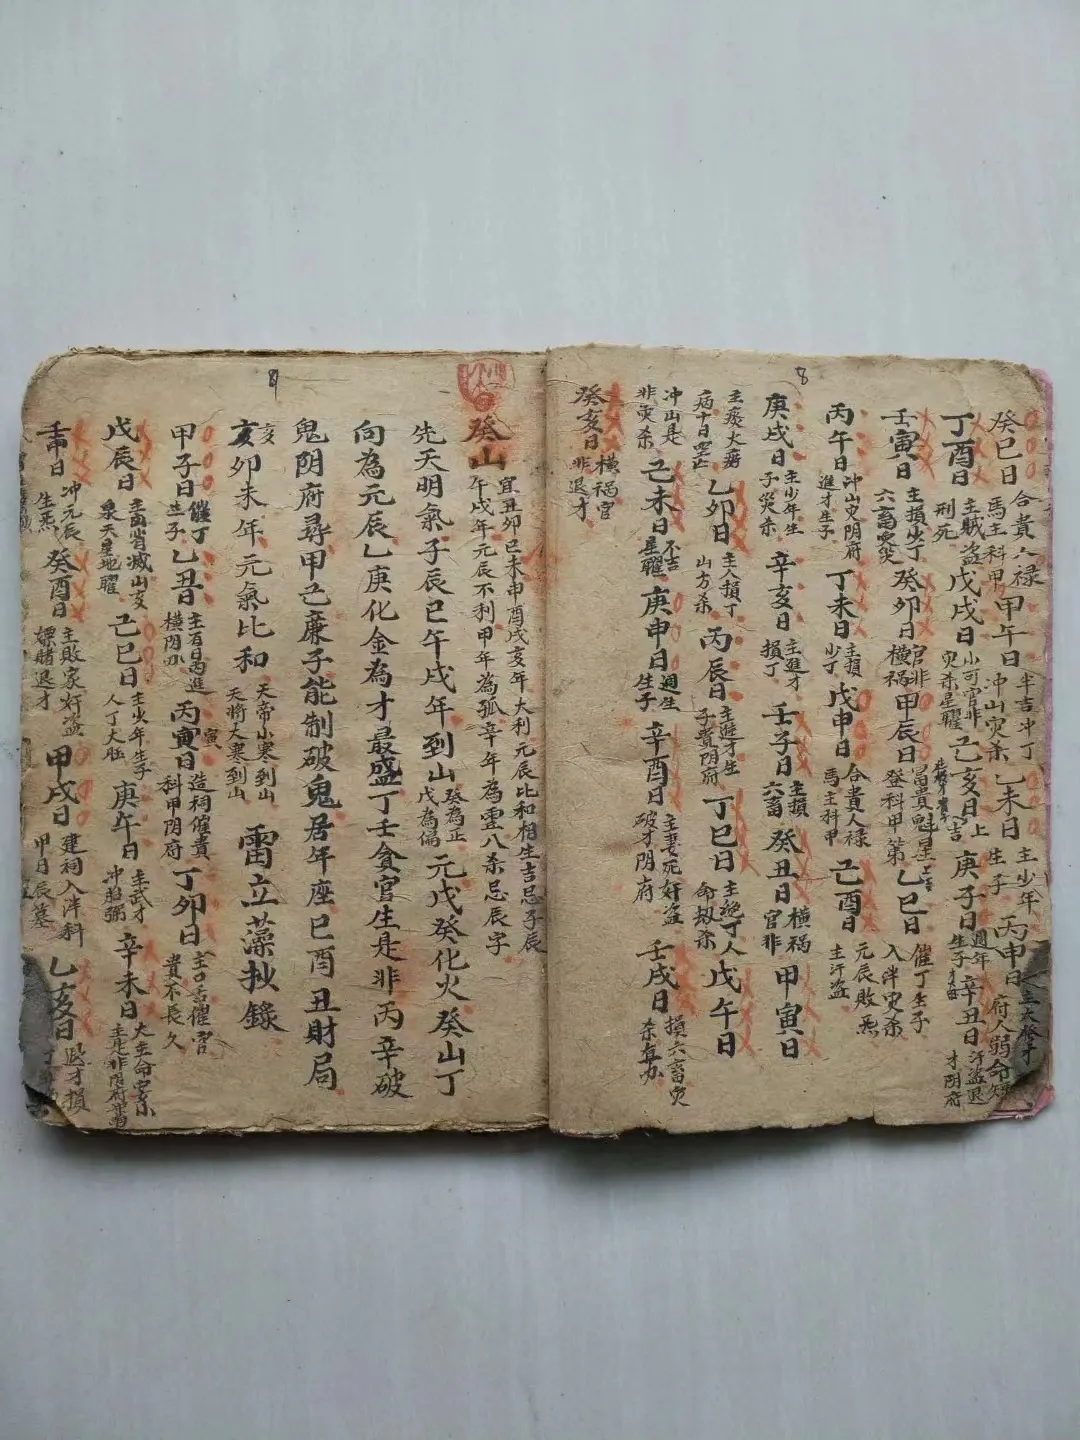 8
癸巳日 合貴人禄馬主科甲 甲午日 半吉冲丁冲山灾杀 乙未日 主少年生子 丙申日 府人弱命短
丁酉日 主賊盗刑死 戊戌日 小可官非灾杀星曜 己亥日 上吉 庚子日 週年生子 辛丑日 汗盗退才阴府
壬寅日 主損少丁六畜灾 癸卯日 官非横禍 甲辰日 富貴魁星登科甲第 乙巳日 催丁生子入泮灾杀
丙午日 冲山灾阴府進才生子 丁未日 主損少丁 戊申日 合貴人禄馬主科甲 己酉日 元辰敗炁主汗盗
庚戌日 主少年生子灾杀 辛亥日 主進才損丁 壬子日 主損六畜 癸丑日 横禍官非 甲寅日
主瘟火病十日空亡 乙卯日 主人損丁山方杀 丙辰日 主進才生子貴阴府 丁巳日 主絶丁人命劫杀 戊午日
冲山是非灾杀 己未日 不吉星曜 庚申日 週生生子 辛酉日 主妻死奸盗破才阴府 壬戌日 損六畜灾
癸亥日 横禍官非退才
癸山 宜丑卯巳未申酉戌亥年大利元辰比和相生吉忌子辰午戌年元辰不利甲年為孤辛年為雲八杀忌辰字
先天明氣子辰巳午戌年到山 癸為正戊為偏 元戊癸化火癸山丁
向為元辰乙庚化金為才最盛丁壬貪官生是非丙辛破
鬼阴府尋甲己廉子能制破鬼居年座巳酉丑財局
亥卯未年元氣比和 天帝小寒到山天将大寒到山 雷立藻抄錄
甲子日 催丁生子 乙丑日 横阴 丙寅日 造祠催貴科甲阴府 丁卯日 主口舌催官貴不長久
戊辰日 泉天星地曜 己巳日 主火年生子人丁大旺 庚午日 主武才 辛未日
壬申日 冲元辰生炁 癸酉日 主敗家奸盗嫖賭退才 甲戌日 建祠入泮科甲日辰墓 乙亥日 退才損